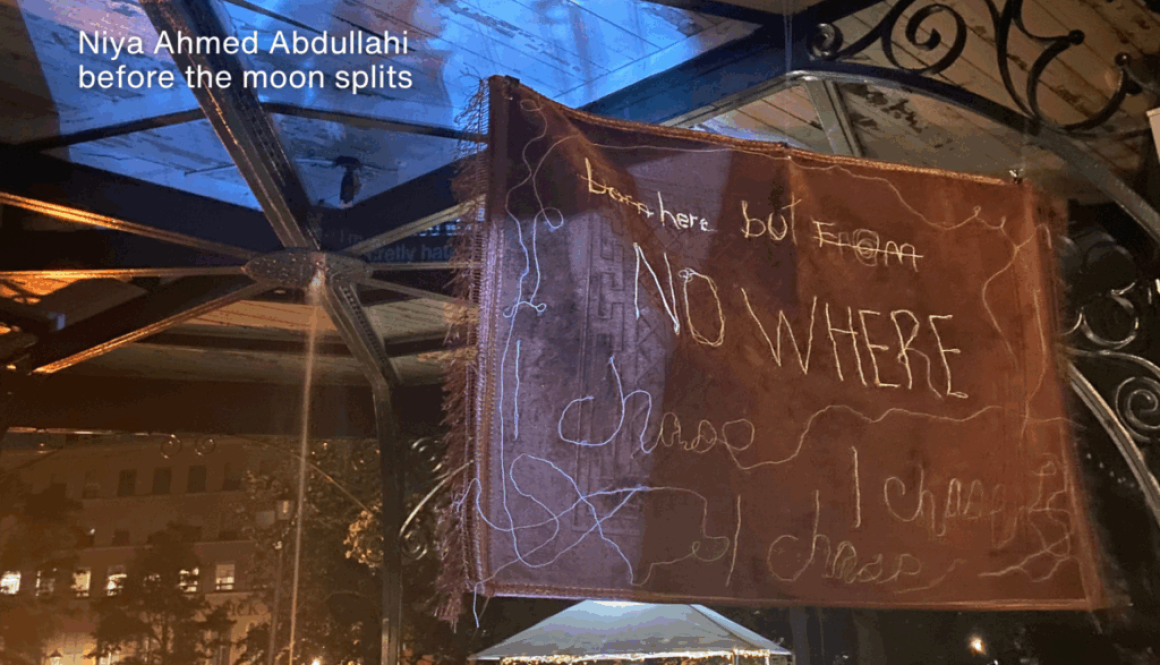 Niya Ahmed Abdullahi
before the moon splits
born here but From
NO WHERE
I chase
I chase
I chase